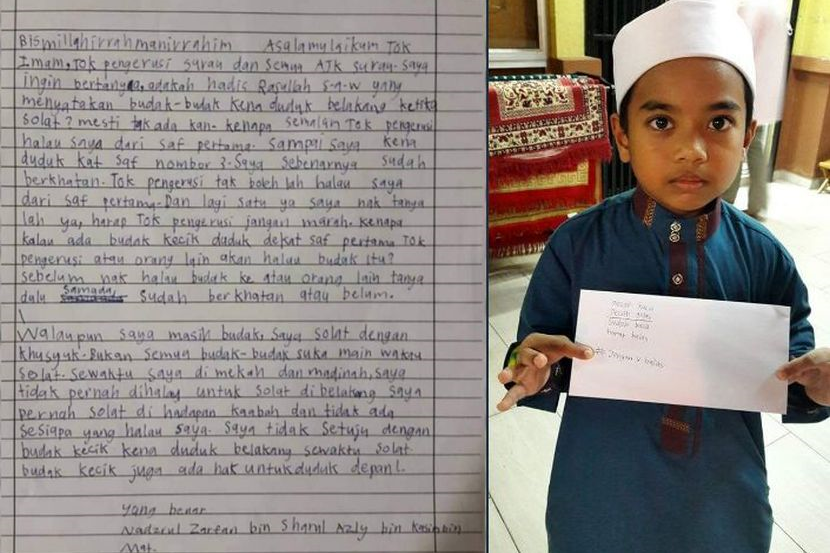 BISmillahirrahmanirrahim Asalamulaikum Tok
Imam, Tok pengerusi surau dan semua AJK surau. Saya
ingin bertanya, adakah hadis Rasullah s.a.w yang
menyatakan budak-budak kena duduk belakang ketika
solat? mesti tak ada kan. kenapa semalam Tok pengerusi
halau saya dari saf pertama. Sampai saya kena
duduk kat saf nombor 3. Saya sebenarnya sudah
berkhatan. Tok pengerusi tak boleh lah halau saya
dari saf pertama. Dan lagi satu ya saya nak tanya
lah ya, harap Tok pengerusi jangan marah. Kenapa
kalau ada budak kecik duduk dekat saf pertama Tok
pengerusi atau orang lain akan halau budak itu?
sebelum nak halau budak ke atau orang lain tanya
dalu samada sudah berkhatan atau belum.
Walaupun saya masih budak, Saya solat dengan
khusyuk. Bukan semua budak-budak suka main waktu
solat. Sewaktu saya di mekah dan madinah, saya
tidak pernah dihalau untuk solat di belakang saya
pernah solat di hadapan kaabah dan tidak ada
sesiapa yang halau saya. Saya tidak setuju dengan
budak kecik kena duduk belakang sewaktu solat.
budak kecik juga ada hak untuk duduk depan!.
Yang benar
Nadzrul Zarfan bin Shaml Azly bin Kasim bin
Mat.